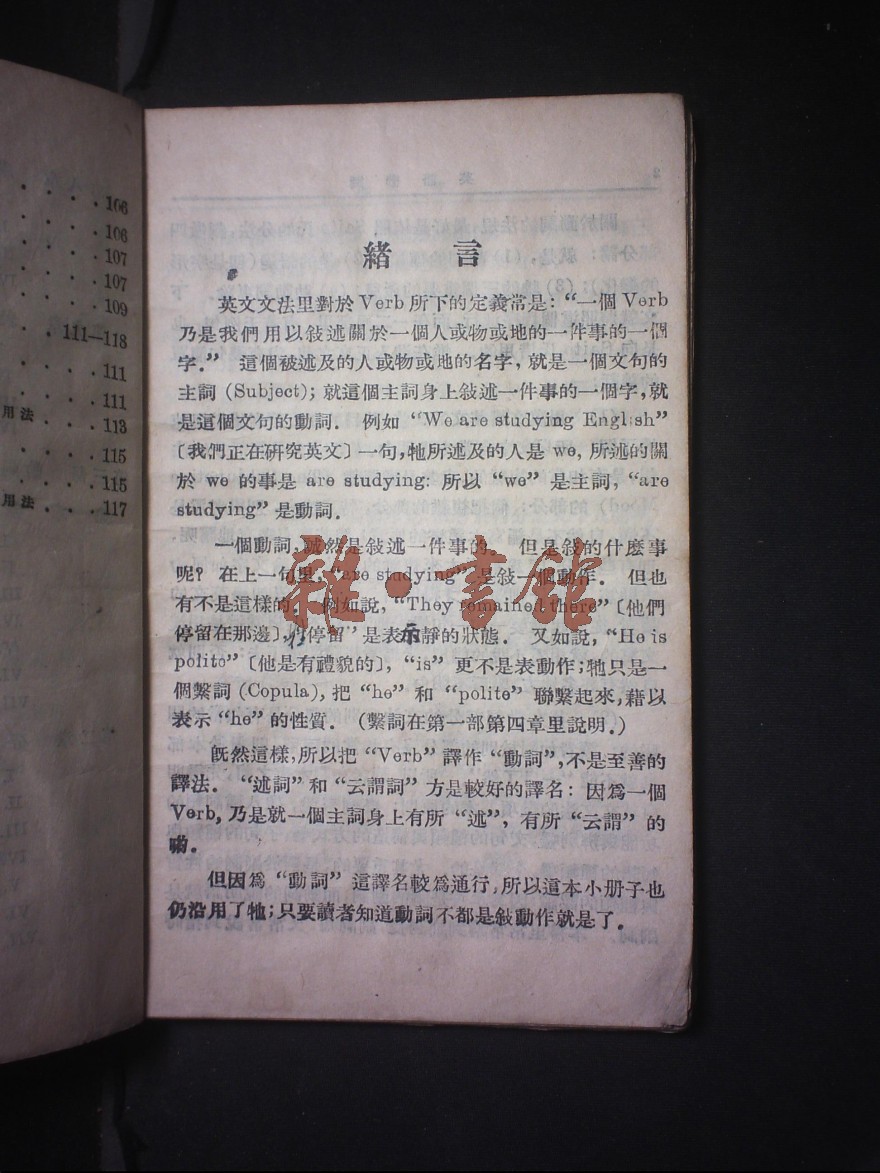 106
106
107
107
109
111—118
111
111
用法 113
115
115
用法 117
緒言
英文文法里對於 Verb 所下的定義常是: “一個 Verb
乃是我們用以敍述關於一個人或物或地的一件事的一個
字.” 這個被述及的人或物或地的名字, 就是一個文句的
主詞 (Subject); 就這個主詞身上敍述一件事的一個字,就
是這個文句的動詞. 例如 “We are studying English”
〔我們正在硏究英文〕一句,牠所述及的人是 we, 所述的關
於 we 的事是 are studying: 所以 “we” 是主詞, “are
studying” 是動詞.
一個動詞, 誠然是敍述一件事的. 但是敍的什麼事
呢? 在上一句里, “are studying” 是敍一個動作. 但也
有不是這樣的. 例如說, “They remained there” 〔他們
停留在那邊〕, 停留” 是表示靜的狀態. 又如說, “He is
polite” 〔他是有禮貌的〕, “is” 更不是表動作;牠只是一
個繫詞 (Copula), 把 “he” 和 “polite” 聯繫起來,藉以
表示 “he” 的性質. (繫詞在第一部第四章里說明.)
旣然這樣,所以把 “Verb” 譯作 “動詞”,不是至善的
譯法. “述詞” 和 “云謂詞” 方是較好的譯名: 因爲一個
Verb, 乃是就一個主詞身上有所 “述”, 有所 “云謂” 的
喲.
但因爲 “動詞” 這譯名較爲通行,所以這本小册子也
仍沿用了牠;只要讀者知道動詞不都是敍動作就是了.
雜·書館